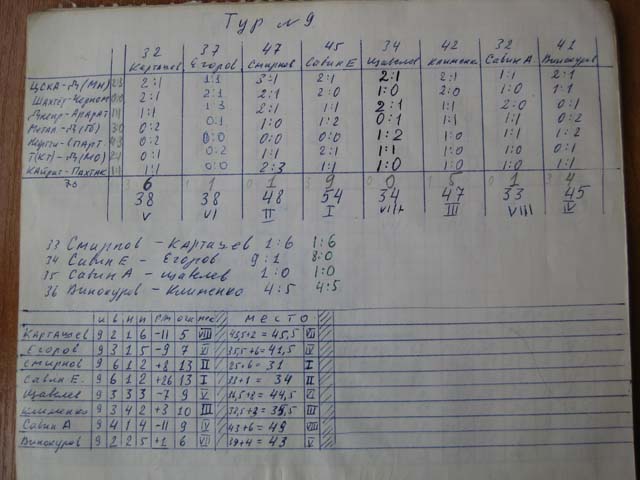 Тур №9
32 37 47 45 34 42 32 41
Карташев Егоров Смирнов Савин Е Щавелев Клименко Савин А Винокуров
ЦСКА-Д(Мн) 2:1 1:1 3:1 2:1 2:1 2:1 1:1 2:1
Шахтёр-Черном 2:1 2:1 2:1 2:0 1:0 2:0 1:0 1:1
Днепр-Арарат 1:1 1:3 2:1 1:1 2:1 1:1 2:0 0:1
Метал-Д(Тб) 0:2 0:1 1:0 1:2 0:1 1:1 1:1 0:2
Нефтчи-Спарт 0:2 0:0 0:0 0:0 1:2 1:0 1:1 1:2
Т(КТ)-Д(МО) 0:1 0:2 1:1 2:1 1:1 1:0 1:0 0:1
Кайрат-Пахтак 1:1 0:0 2:3 1:1 1:0 1:0 1:0 1:1
6 1 1 9 0 5 1 4
38 38 48 54 34 47 33 45
V VI II I VIII III VIII IV
33 Смирнов - Карташев 1:6 1:6
34 Савин Е - Егоров 9:1 8:0
35 Савин А - Щавелев 1:0 1:0
36 Винокуров - Клименко 4:5 4:5
и в н п рм очи мес место
Карташев 9 2 1 6 -11 5 VIII 43,5+2=45,5 VII
Егоров 9 3 1 5 -9 7 VI 35,5+6=41,5 IV
Смирнов 9 6 1 2 +8 13 II 25+6=31 I
Савин Е. 9 6 1 2 +26 13 I 33+1=34 II
Щавелев 9 3 3 3 -7 9 V 36,5+8=44,5 VI
Клименко 9 3 4 2 +3 10 III 32,5+3=35,5 III
Савин А 9 4 1 4 -11 9 IV 43+6=49 VIII
Винокуров 9 2 2 5 +1 6 VII 39+4=43 V